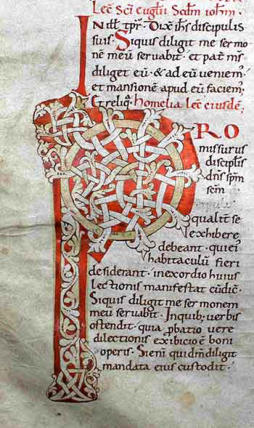 Lec̄. Sc̄i Euglīi. Scdm̄ Ioħm̄.
IN ill̄. tp̄r. Dix̄ iħs discipulis
suis. Siquis diligit me sermo
nē meū seruabit. et pat̄ ms̄
diliget eū. & ad eū veniem̄
et mansionē apud eū faciem̄.
Et reliq̄. Homelia lec̄ eiusdē.
PRO
missurus
discip̄lis
dn̄s sp̄m
sc̄m
qualit̄ se
exhibere
debeant. qui ei
habitaculū fieri
desiderant. in exordio huius
lectionis manifestat cū dic̄.
Siquis diligit me sermonem
meū seruabit. Inquib; verbis
ostendit. quia p̄batio vere
dilectionis exibicio ē boni
operis. Siem̄ quis dm̄ diligit
mandata eius custodit.